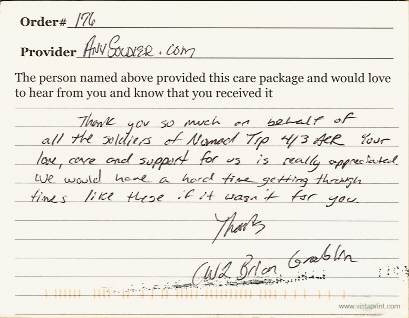 Order# 176
Provider AnySoldier.com
The person named above provided this care package and would love
to hear from you and know that you received it
Thank you so much on behalf of
all the soldiers of Nomad Trp 4/3 ACR Your
love, care and support for us is really appreciated
We would have a hard time getting through
times like these if it wasn't for you.
Thanks
CW2 Brian
www.vistaprint.com